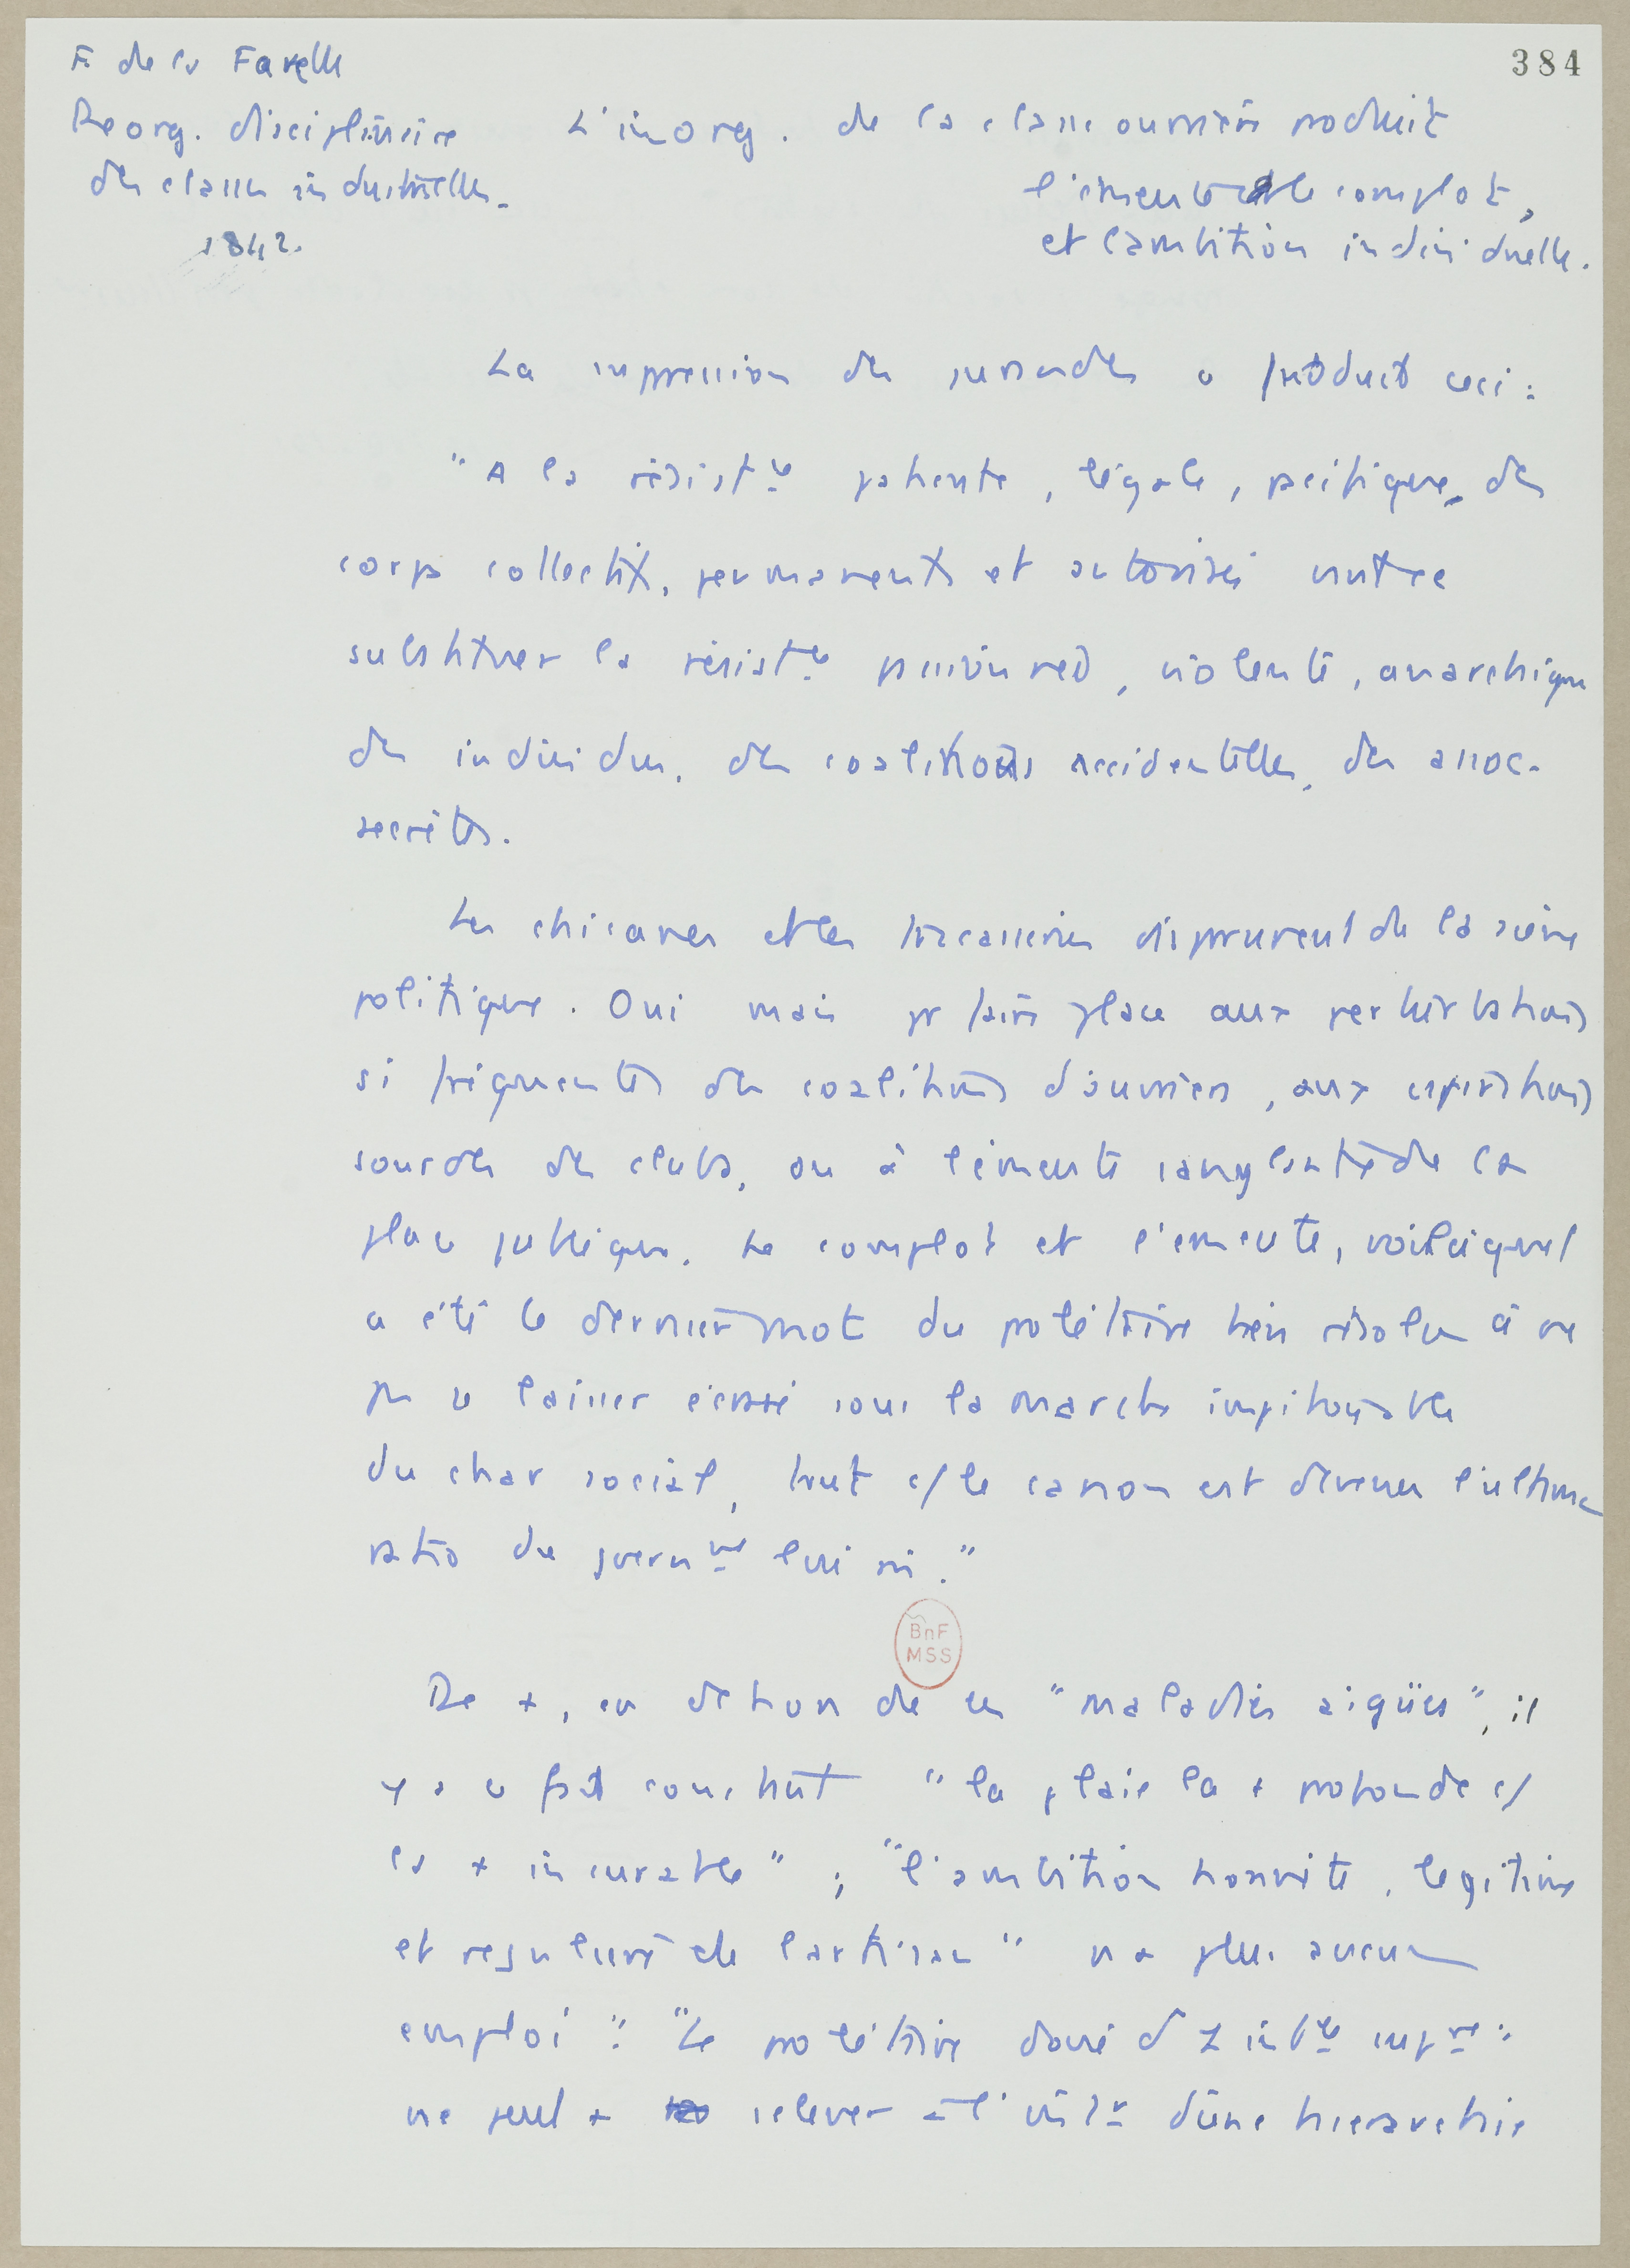 F. de la Farelle
384
Reorg. disciplinaire
des classes industrielles.
1842.
L'inorg. de la classe ouvrière produit
l'émeute et le complot,
et l'ambition individuelle.
La suppression des jurandes a produit ceci :
"A la résist.ce patiente, légale, pacifique, des
corps collectifs, permanents et autorisés
substituer la résist.ce violente, anarchique
des individus, des coalitions accidentelles, des assoc.
secrètes.
Les chicanes et les tracasseries disparurent de la scène
politique. Oui mais pr faire place aux perturbations
si fréquentes des coalitions d'ouvriers, aux
sourdes des clubs, ou à l'émeute sanglante de la
place publique. Le complot et l'émeute, voilà quel
a été le dernier mot du prolétaire bien résolu à ne
pas se laisser écrasé sous la marche impitoyable
du char social, tout c/ le canon est devenu l'ultima
ratio du gvernme lui mi."
BnF
MSS
De +, en dehors de ces "maladies aigües", il
y a ce fait constant "la plaie la + profonde c/
la + incurable" ; "l'ambition honnête, légitime
et régulière de l'artisan" n'a plus aucun
emploi : "Le prolétaire doué d'1 int.ce sup.re
ne peut + s'élever à l'int.r d'une hierarchie